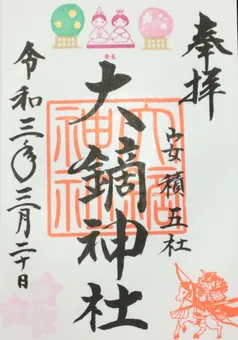 奉拝
安積五社
大鏑神社
令和三年三月二十日